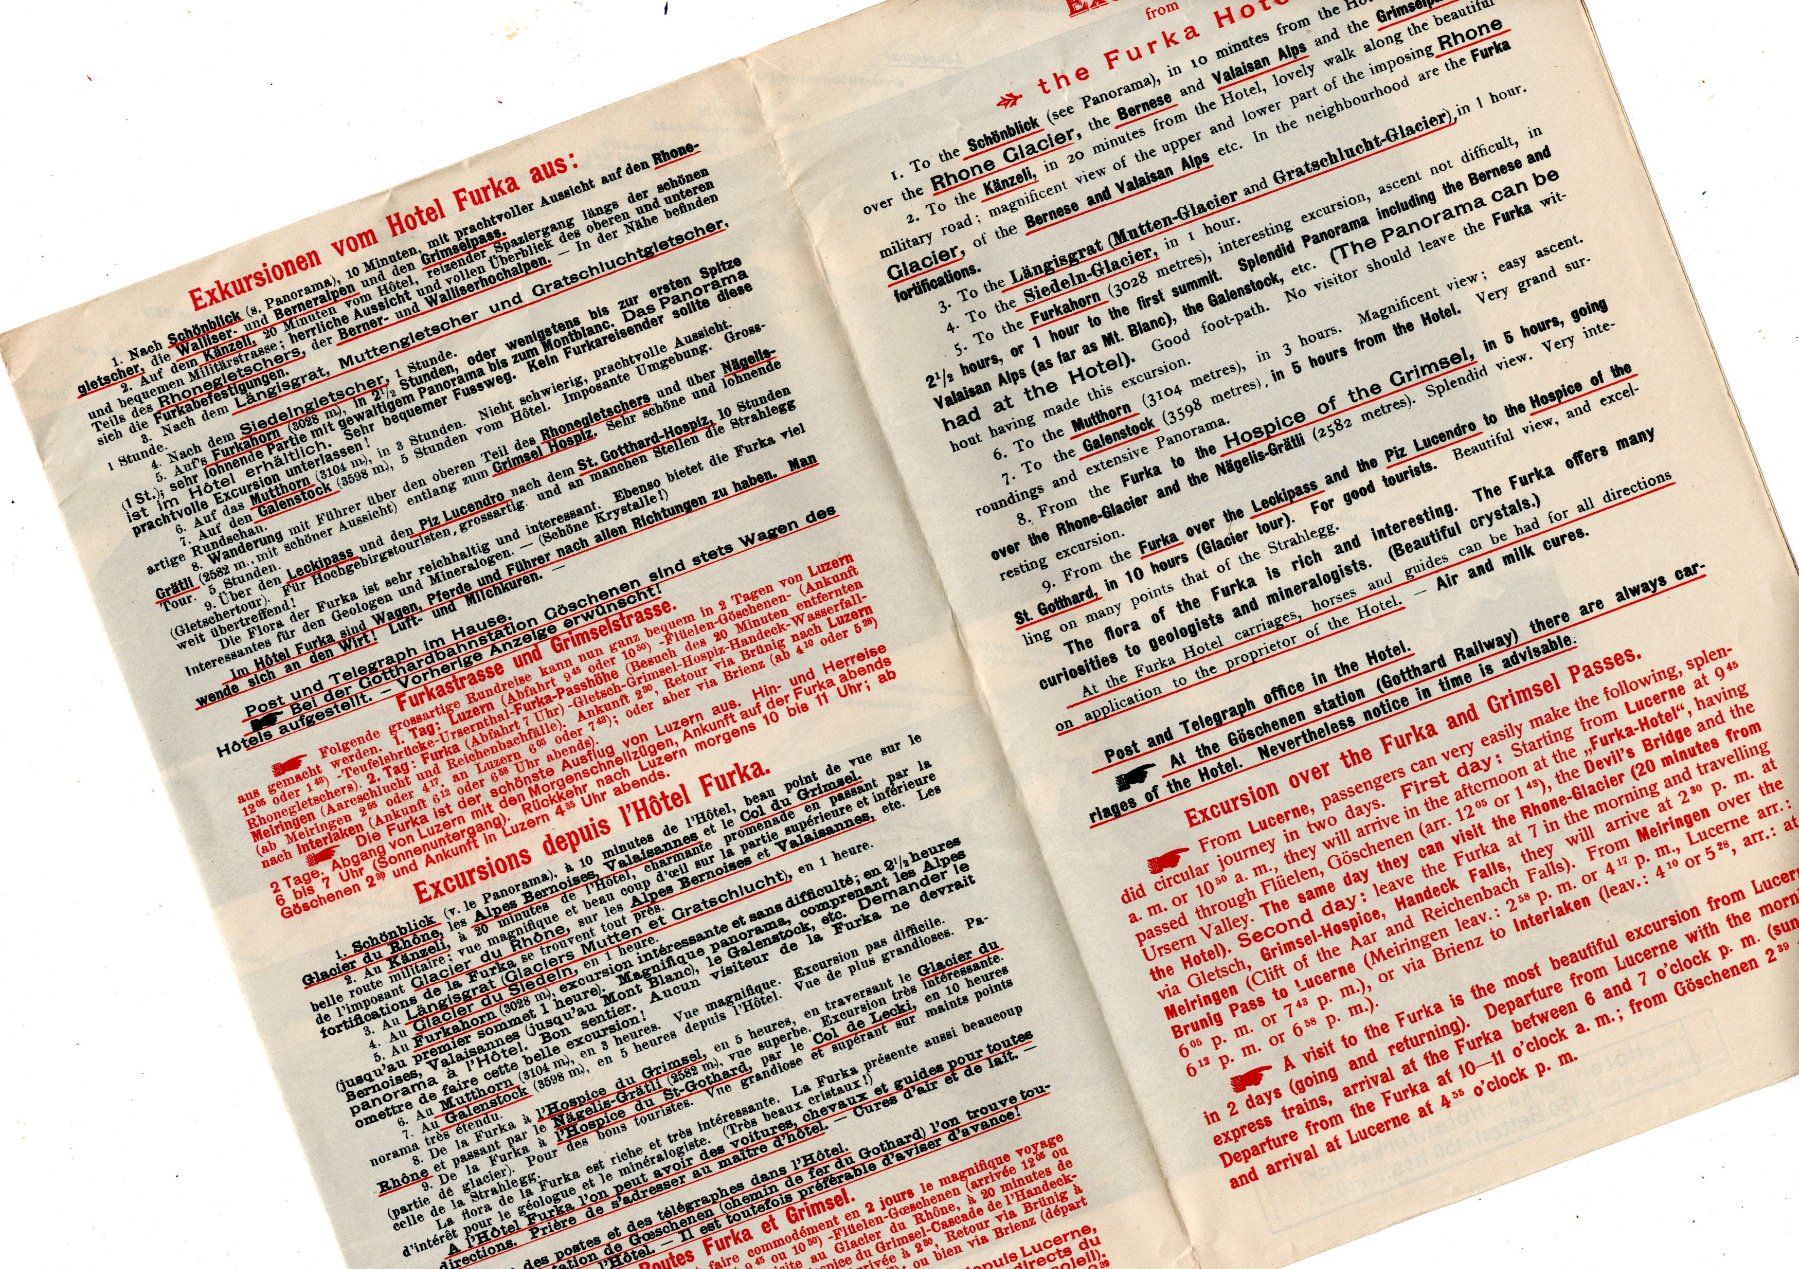 Exkursionen vom Hotel Furka aus:
1. Nach Schönblick (s. Panorama), 10 Minuten, mit prachtvoller Aussicht auf den Rhone-
gletscher, die Walliser- und Berneralpen und den Grimselpass.
2. Auf dem Känzeli, 20 Minuten vom Hôtel, reizender Spaziergang längs der schönen
und bequemen Militärstrasse; herrliche Aussicht und vollen Überblick des oberen und unteren
Teils des Rhonegletschers, der Berner- und Walliserhochalpen. — In der Nähe befinden
sich die Furkabefestigungen.
3. Nach dem Längisgrat, Muttengletscher und Gratschluchtgletscher,
1 Stunde.
4. Nach dem Siedelngletscher, 1 Stunde.
5. Auf's Furkahorn (3028 m), in 2½ Stunden, oder wenigstens bis zur ersten Spitze
(1 St.); sehr lohnende Partie mit gewaltigem Panorama bis zum Montblanc. Das Panorama
ist im Hôtel erhältlich. Sehr bequemer Fussweg. Kein Furkareisender sollte diese
prachtvolle Excursion unterlassen!
6. Auf das Mutthorn (3104 m), in 3 Stunden. Nicht schwierig, prachtvolle Aussicht.
7. Auf den Galenstock (3598 m), 5 Stunden vom Hôtel. Imposante Umgebung. Gross-
artige Rundschau.
8. Wanderung mit Führer über den oberen Teil des Rhonegletschers und über Nägelis-
Grätli (2582 m, mit schöner Aussicht) entlang zum Grimsel Hospiz. Sehr schöne und lohnende
Tour. 5 Stunden.
9. Über den Leckipass und den Piz Lucendro nach dem St. Gotthard-Hospiz, 10 Stunden
(Gletschertour). Für Hochgebirgstouristen, grossartig, und an manchen Stellen die Strahlegg
weit übertreffend!
Die Flora der Furka ist sehr reichhaltig und interessant. Ebenso bietet die Furka viel
Interessantes für den Geologen und Mineralogen. — (Schöne Krystalle!)
Im Hôtel Furka sind Wagen, Pferde und Führer nach allen Richtungen zu haben. Man
wende sich an den Wirt! Luft- und Milchkuren. —
Post und Telegraph im Hause.
Bei der Gotthardbahnstation Göschenen sind stets Wagen des
Hôtels aufgestellt. — Vorherige Anzeige erwünscht!
Furkastrasse und Grimselstrasse.
Folgende grossartige Rundreise kann nun ganz bequem in 2 Tagen von Luzern
aus gemacht werden. 1. Tag: Luzern (Abfahrt 9⁴⁵ oder 10⁵⁰) -Flüelen-Göschenen- (Ankunft
12⁰⁵ oder 1⁴³) -Teufelsbrücke-Ursernthal-Furka-Passhöhe (Besuch des 20 Minuten entfernten
Rhonegletschers). 2. Tag: Furka (Abfahrt 7 Uhr) -Gletsch-Grimsel-Hospiz-Handeck-Wasserfall-
Meiringen (Aareschlucht und Reichenbachfälle). Ankunft 2³⁰, Retour via Brünig nach Luzern
(ab Meiringen 2⁵⁸ oder 4¹⁷, an Luzern 6⁰⁵ oder 7⁴³); oder aber via Brienz (ab 4¹⁰ oder 5²⁸)
nach Interlaken (Ankunft 6¹² oder 6⁵⁸ Uhr abends).
Die Furka ist der schönste Ausflug von Luzern aus. Hin- und Herreise
2 Tage. Abgang von Luzern mit den Morgenschnellzügen, Ankunft auf der Furka abends
6 bis 7 Uhr (Sonnenuntergang). Rückkehr nach Luzern morgens 10 bis 11 Uhr; ab
Göschenen 2³⁹ und Ankunft in Luzern 4³⁵ Uhr abends.
Excursions depuis l'Hôtel Furka.
1. Schönblick (v. le Panorama), à 10 minutes de l'Hôtel, beau point de vue sur le
Glacier du Rhône, les Alpes Bernoises, Valaisannes et le Col du Grimsel.
2. Au Känzeli, à 20 minutes de l'Hôtel, charmante promenade en passant par la
belle route militaire; vue magnifique et beau coup d'œil sur la partie supérieure et inférieure
de l'imposant Glacier du Rhône, sur les Alpes Bernoises et Valaisannes, etc. Les
fortifications de la Furka se trouvent tout près.
3. Au Längisgrat (Glaciers Mutten et Gratschlucht), en 1 heure.
4. Au Glacier du Siedeln, en 1 heure.
5. Au Furkahorn (3028 m), excursion intéressante et sans difficulté; en 2½ heures
(jusqu'au premier sommet 1 heure). Magnifique panorama, comprenant les Alpes
Bernoises, Valaisannes (jusqu'au Mont Blanc), le Galenstock, etc. Demander le
panorama à l'Hôtel. Bon sentier. Aucun visiteur de la Furka ne devrait
omettre de faire cette belle excursion!
6. Au Mutthorn (3104 m), en 3 heures. Vue magnifique. Excursion pas difficile.
7. Au Galenstock (3598 m), en 5 heures depuis l'Hôtel. Vue de plus grandioses. Pa-
norama très étendu.
8. De la Furka à l'Hospice du Grimsel, en 5 heures, en traversant le Glacier du
Rhône et passant par le Nägelis-Grätli (2582 m), vue superbe. Excursion très intéressante.
9. De la Furka à l'Hospice du St-Gothard, par le Col de Lecki, en 10 heures
(partie de glacier). Pour des bons touristes. Vne grandiose et supérant sur maints points
celle de la Strahlegg.
La flora de la Furka est riche et très intéressante. La Furka présente aussi beaucoup
d'intérêt pour le géologue et le minéralogiste. (Très beaux cristaux!)
A l'Hôtel Furka l'on peut avoir des voitures, chevaux et guides pour toutes
directions. Prière de s'adresser au maître d'hôtel. — Cures d'air et de lait. —
des postes et des télégraphes dans l'Hôtel.
tation de Gœschenen (chemin de fer du Gothard) l'on trouve tou-
l'Hôtel. — Il est toutefois préférable d'aviser d'avance!
Routes Furka et Grimsel.
faire commodément en 2 jours le magnifique voyage
9⁴⁵ ou 10⁵⁰) -Flüelen-Gœschenen (arrivée 12⁰⁵ ou
visite au Glacier du Rhône, à 20 minutes de
Hospice du Grimsel-Cascade de l'Handeck-
arrivée à 2³⁰, Retour via Brünig à
ou bien via Brienz (départ
depuis Lucerne,
directs du
soleil).
from
the Furka Hotel
1. To the Schönblick (see Panorama), in 10 minutes from the
over the Rhone Glacier, the Bernese and Valaisan Alps and the
2. To the Känzeli, in 20 minutes from the Hotel, lovely walk along the beautiful
military road; magnificent view of the upper and lower part of the imposing Rhone
Glacier, of the Bernese and Valaisan Alps etc. In the neighbourhood are the Furka
fortifications.
3. To the Längisgrat (Mutten-Glacier and Gratschlucht-Glacier), in 1 hour.
4. To the Siedeln-Glacier, in 1 hour.
5. To the Furkahorn (3028 metres), interesting excursion, ascent not difficult, in
2½ hours, or 1 hour to the first summit. Splendid Panorama including the Bernese and
Valaisan Alps (as far as Mt. Blanc), the Galenstock, etc. (The Panorama can be
had at the Hotel). Good foot-path. No visitor should leave the Furka wit-
hout having made this excursion.
6. To the Mutthorn (3104 metres), in 3 hours. Magnificent view; easy ascent.
7. To the Galenstock (3598 metres), in 5 hours from the Hotel. Very grand sur-
roundings and extensive Panorama.
8. From the Furka to the Hospice of the Grimsel, in 5 hours, going
over the Rhone-Glacier and the Nägelis-Grätli (2582 metres). Splendid view. Very inte-
resting excursion.
9. From the Furka over the Leckipass and the Piz Lucendro to the Hospice of the
St. Gotthard, in 10 hours (Glacier tour). For good tourists. Beautiful view, and excel-
ling on many points that of the Strahlegg.
The flora of the Furka is rich and interesting. The Furka offers many
curiosities to geologists and mineralogists. (Beautiful crystals.)
At the Furka Hotel carriages, horses and guides can be had for all directions
on application to the proprietor of the Hotel. — Air and milk cures.
Post and Telegraph office in the Hotel.
At the Göschenen station (Gotthard Railway) there are always car-
riages of the Hotel. Nevertheless notice in time is advisable.
Excursion over the Furka and Grimsel Passes.
From Lucerne, passengers can very easily make the following, splen-
did circular journey in two days. First day: Starting from Lucerne at 9⁴⁵
a. m. or 10⁵⁰ a. m., they will arrive in the afternoon at the „Furka-Hotel“, having
passed through Flüelen, Göschenen (arr. 12⁰⁵ or 1⁴³), the Devil's Bridge and the
Ursern Valley. The same day they can visit the Rhone-Glacier (20 minutes from
the Hotel). Second day: leave the Furka at 7 in the morning and travelling
via Gletsch, Grimsel-Hospice, Handeck Falls, they will arrive at 2³⁰ p. m. at
Meiringen (Clift of the Aar and Reichenbach Falls). From Meiringen over the
Brunig Pass to Lucerne (Meiringen leav.: 2⁵⁸ p. m. or 4¹⁷ p. m., Lucerne arr.:
6⁰⁵ p. m. or 7⁴³ p. m.), or via Brienz to Interlaken (leav.: 4¹⁰ or 5²⁸, arr.: at
6¹² p. m. or 6⁵⁸ p. m.).
A visit to the Furka is the most beautiful excursion from Lucerne
in 2 days (going and returning). Departure from Lucerne with the
express trains, arrival at the Furka between 6 and 7 o'clock p. m.
Departure from the Furka at 10—11 o'clock a. m.; from Göschenen 2³⁹
and arrival at Lucerne at 4³⁵ o'clock p. m.